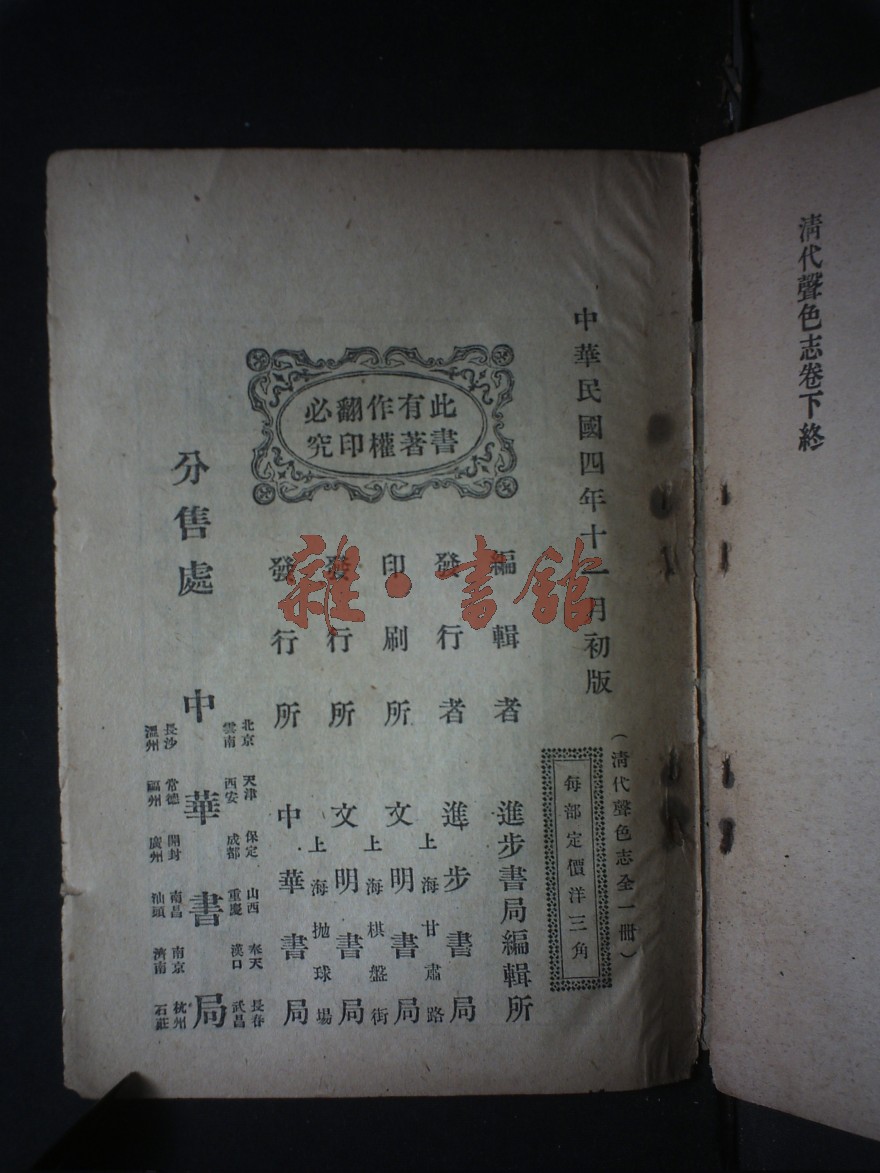 清代聲色志卷下終
中華民國四年十一月初版
(清代聲色志全一冊)
每部定價洋三角
此書有著作權翻印必究
編輯者 進步書局編輯所
發行者 上海甘肅路 進步書局
印刷所 上海棋盤街 文明書局
發行所 上海拋球場 文明書局
發行所 中華書局
分售處 中華書局
北京 天津 保定 山西 奉天 長春
雲南 西安 成都 重慶 漢口 武昌
長沙 常德 開封 南昌 南京 杭州
溫州 福州 廣州 汕頭 濟南 石莊
雜·書館